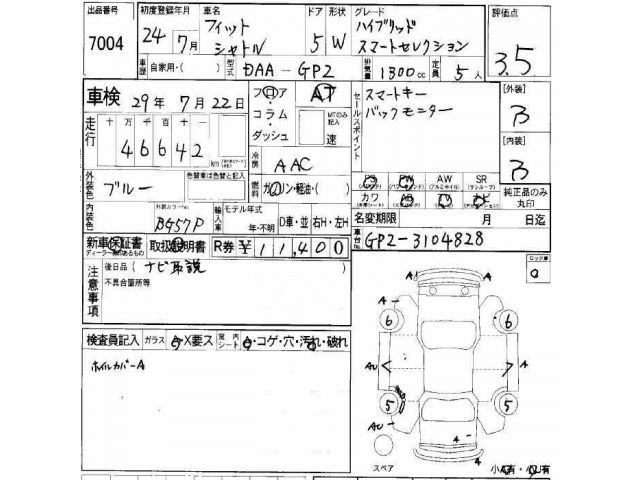 出品番号 7004
初度登録年月 24年 7月
車名 フィット シャトル
ドア 形状 5 W
グレード ハイブリッド スマートセレクション
評価点 3.5
車歴 自家用・( )
型式 DAA-GP2
排気量 1300cc
定員 5人
車検 29年 7月 22日
フロア・コラム・ダッシュ
AT
MTのみ記入
速
セールスポイント
スマートキー
バックモニター
[外装] B
[内装] B
走行 十万千百十一
46642 km
冷房 AAC
外装色 ブルー
色替車は色替と記入
燃料 ガソリン・軽油・( )
PS PW AW SR
(アルミホイル) (サンルーフ)
カワ
純正品のみ丸印
内装色
外装カラーNo. BG57P
輸入車 モデル年式 年・不明
D車・並 右H・左H
名変期限 月 日迄
新車保証書
ディーラー印があるもの
取扱説明書
R券 ¥11,400
車台No. GP2-3104828
注意事項
後日品(ナビ取説 )
不具合箇所等
検査員記入
ガラス A・X要ス
室内シート ・コゲ・穴・汚れ・破れ
ホイルカバーA
A
A
A
A
6
6
AU
A
5
5
AU
A
A
スペア